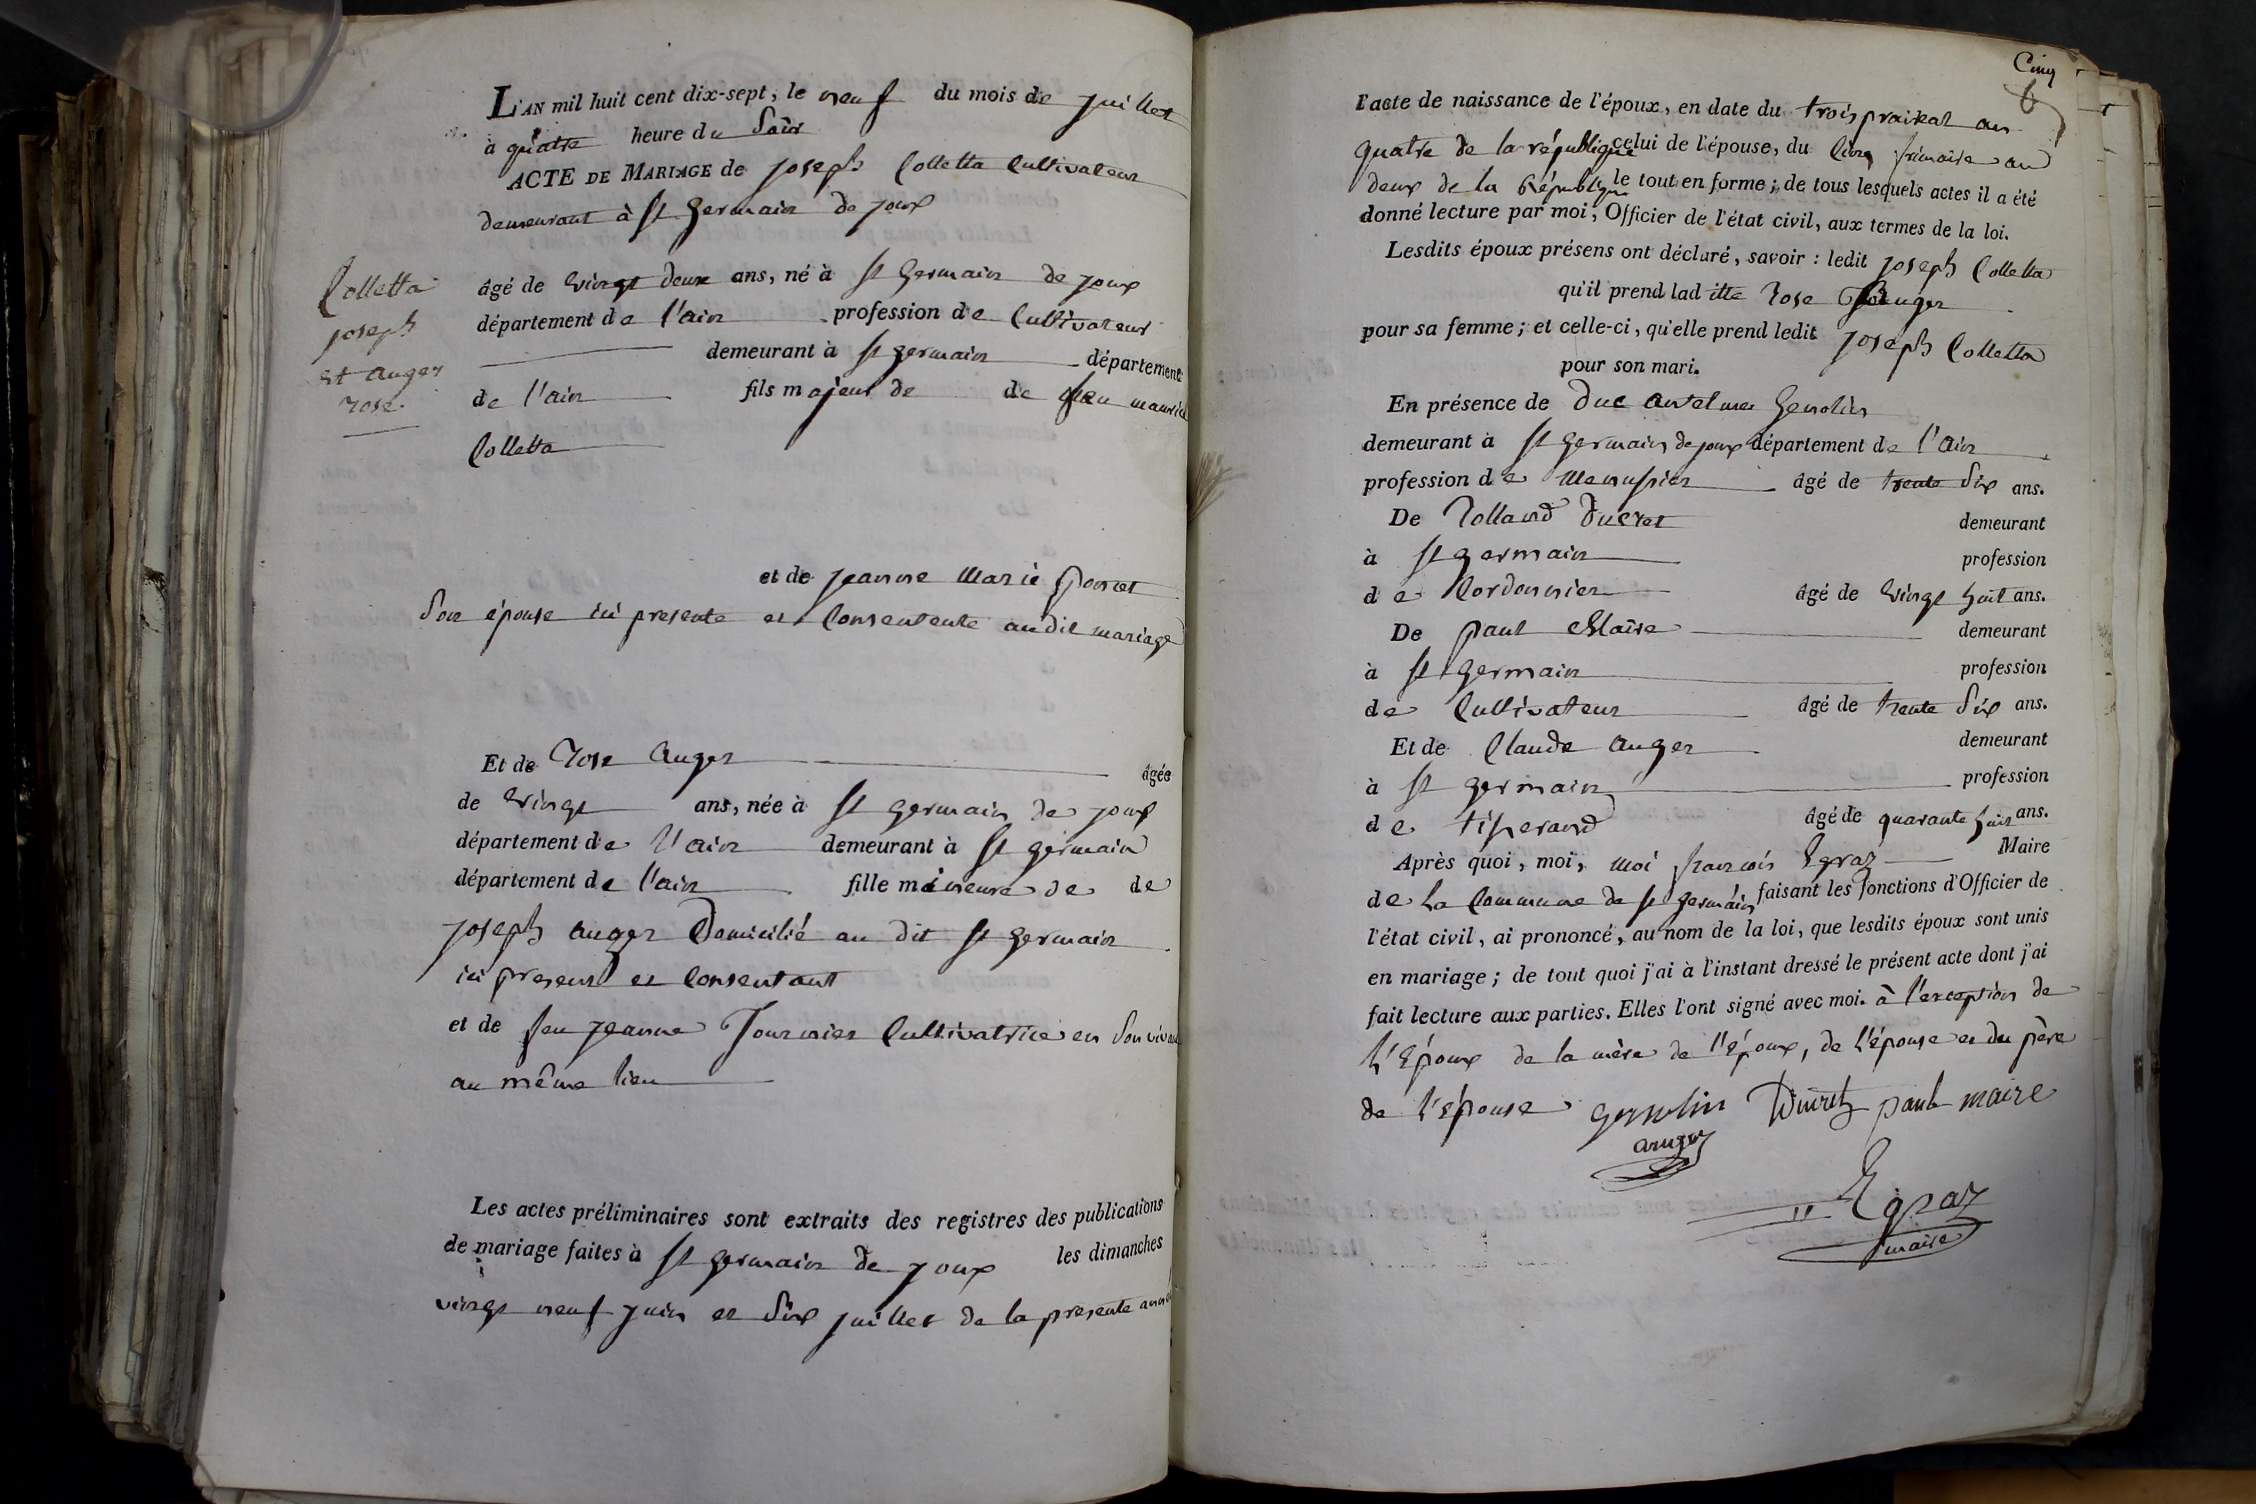 L'AN mil huit cent dix-sept, le neuf du mois de juillet
à quatre heure du Soir
ACTE DE MARIAGE de joseph Colletta Cultivateur
demeurant à St germain de joux
Colletta
joseph
et auger
rose.
âgé de vingt deux ans, né à St Germain de joux
département de l'ain profession de Cultivateur
demeurant à St germain département
de l'ain fils majeur de de feu maurice
Colletta
et de jeanne Marie poncet
Son épouse ici presente et Consentente audit mariage
Et de Rose Auger âgée
de vingt ans, née à St germain de joux
département de l'ain demeurant à St germain
département de l'ain fille mineure de de
joseph auger Domicilié au dit St germain
ici present et Consentant
et de feu jeanne Tournier Cultivatrice en Son vivant
au même lieu
Les actes préliminaires sont extraits des registres des publications
de mariage faites à St germain de joux les dimanches
vingt neuf juin et Six juillet de la presente année
Cinq
l'acte de naissance de l'époux, en date du trois prairial an
quatre de la république celui de l'épouse, du frimaire an
deux de la République le tout en forme; de tous lesquels actes il a été
donné lecture par moi, Officier de l'état civil, aux termes de la loi.
Lesdits époux présens ont déclaré, savoir : ledit joseph Colletta
qu'il prend lad itte Rose auger
pour sa femme; et celle-ci, qu'elle prend ledit joseph Colletta
pour son mari.
En présence de Duc Antelme Genolin
demeurant à St germain de joux département de l'ain
profession de Menusier âgé de trente Six ans.
De Rolland Ducret demeurant
à St germain profession
de Cordonnier âgé de vingt huit ans.
De paul Maire demeurant
à St germain profession
de Cultivateur âgé de trente Six ans.
Et de Claude auger demeurant
à St germain profession
de tiserand âgé de quarante huit ans.
Après quoi, moi, moi francois Egraz Maire
de La Commune de St germain faisant les fonctions d'Officier de
l'état civil, ai prononcé, au nom de la loi, que lesdits époux sont unis
en mariage; de tout quoi j'ai à l'instant dressé le présent acte dont j'ai
fait lecture aux parties. Elles l'ont signé avec moi. à l'exception de
L'Époux de la mère de l'Époux, de L'épouse et du père
de l'épouse genolin Ducret paul maire
auger
Egraz
maire